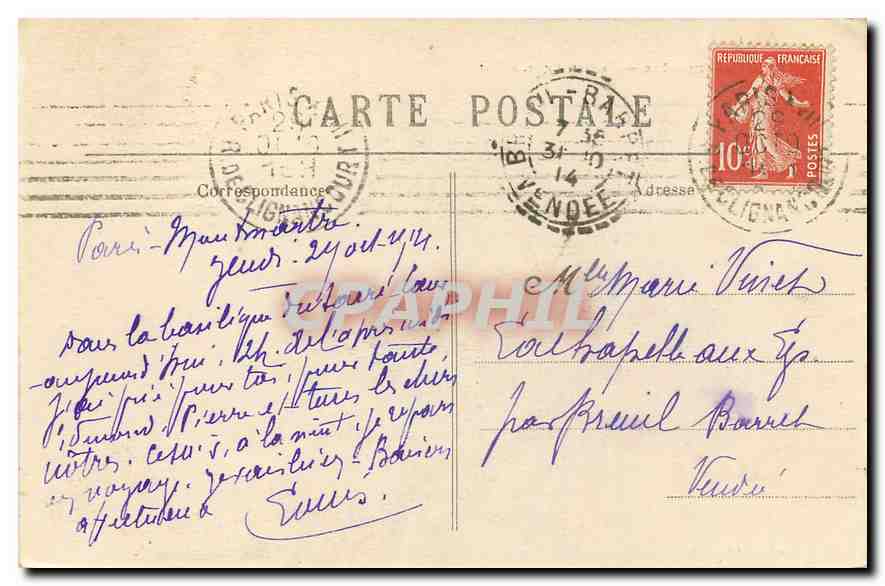 CARTE POSTALE
RÉPUBLIQUE FRANÇAISE
10c
POSTES
PARIS XVIII
R. DE CLIGNANCOURT
7 35
31 - 10
14
VENDÉE
Correspondance
Adresse
Paris - Montmartre
jeudi. 29 oct. 1914.
Dans la basilique du Sacré Coeur
aujourd'hui, 2h. de l'après midi
j'ai prié pour toi, pour tante,
Edmond, Pierre et tous les chers
nôtres. Ce soir, à la nuit, je repars
en voyage. Baisers
affectueux
Louis.
Mlle Marie Vinet
La Chapelle aux Lys
par Breuil Barret
Vendée
CPAPHIL